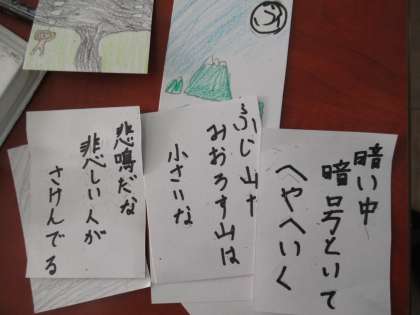 ふ
暗い中
暗号といて
へやへいく
ふじ山や
みおろす山は
小さいな
悲鳴だな
悲しい人が
さけんでる